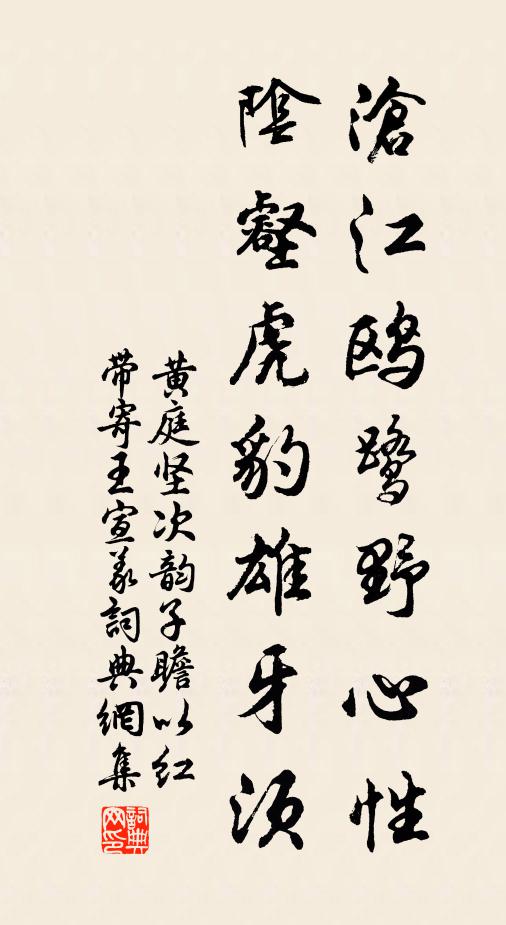 滄江鸥鹭野心性
陰壑虎豹雄牙须
黄庭坚次韵子瞻以红
带寄王宣义詞典網集
詞典
网印